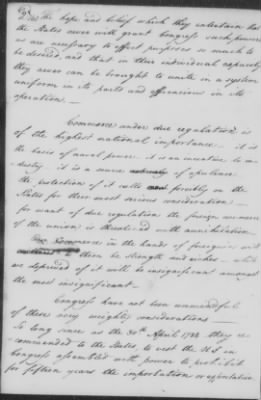 the hope and belief which they entertain that
the States even will grant Congress such powers
as are necessary to effect purposes so much to
be desired, and that in their individual capacity
they even can be brought to unite in a system
uniform in its parts and efficacious in its
operation —
Commerce under due regulations is
of the highest national importance — it is
the basis of naval power — it is an incentive to in-
dustry — it is a source of opulence
the protection of it calls forcibly on the
States for their most serious consideration —
for want of due regulation the foreign commerce
of the union is threatened with annihilation
Commerce in the hands of foreigners will
them be strength and riches — while
we deprived of it will be insignificant amongst
the most insignificant —
Congress have not been unmindful
of these very weighty considerations —
So long since as the 30th April 1784 they re-
commended to the States to vest the U S in
Congress assembled with power to prohibit
for fifteen years the importation or exportation